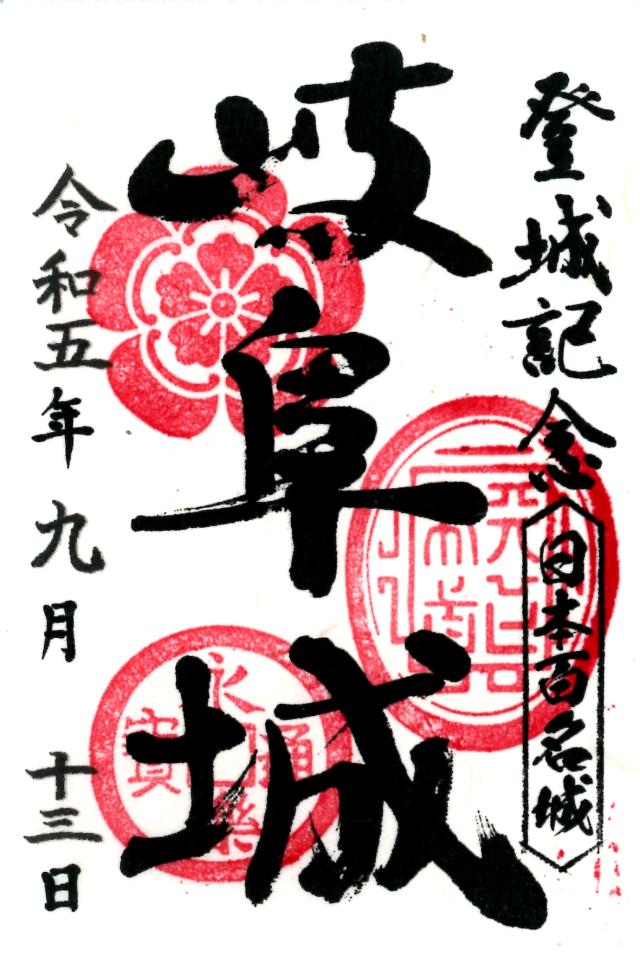 登城記念
日本百名城
岐阜城
令和五年 九月 十三日
永樂通寳